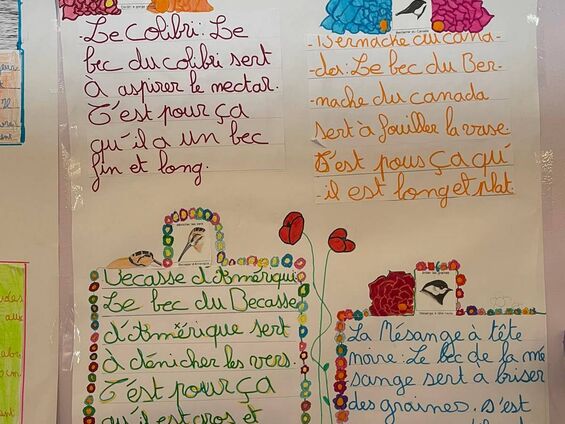 -Le Colibri: Le
bec du colibri sert
à aspirer le nectar.
C'est pour ça
qu'il a un bec
fin et long.
-Bernache du cana-
da: Le bec du Ber-
nache du canada
sert à fouiller la vase.
C'est pous ça qu'
il est long et plat.
dénicher les vers
Bécasse d'Amérique
Becasse d'Amérique
Le bec du Becasse
d'Amérique sert
à dénicher les vers.
C'est pour ça
qu'il est gros et
briser des graines
Mésange à tête noire
La Mésange à tête
noire: Le bec de la mé
sange sert a briser
des graines. S'est